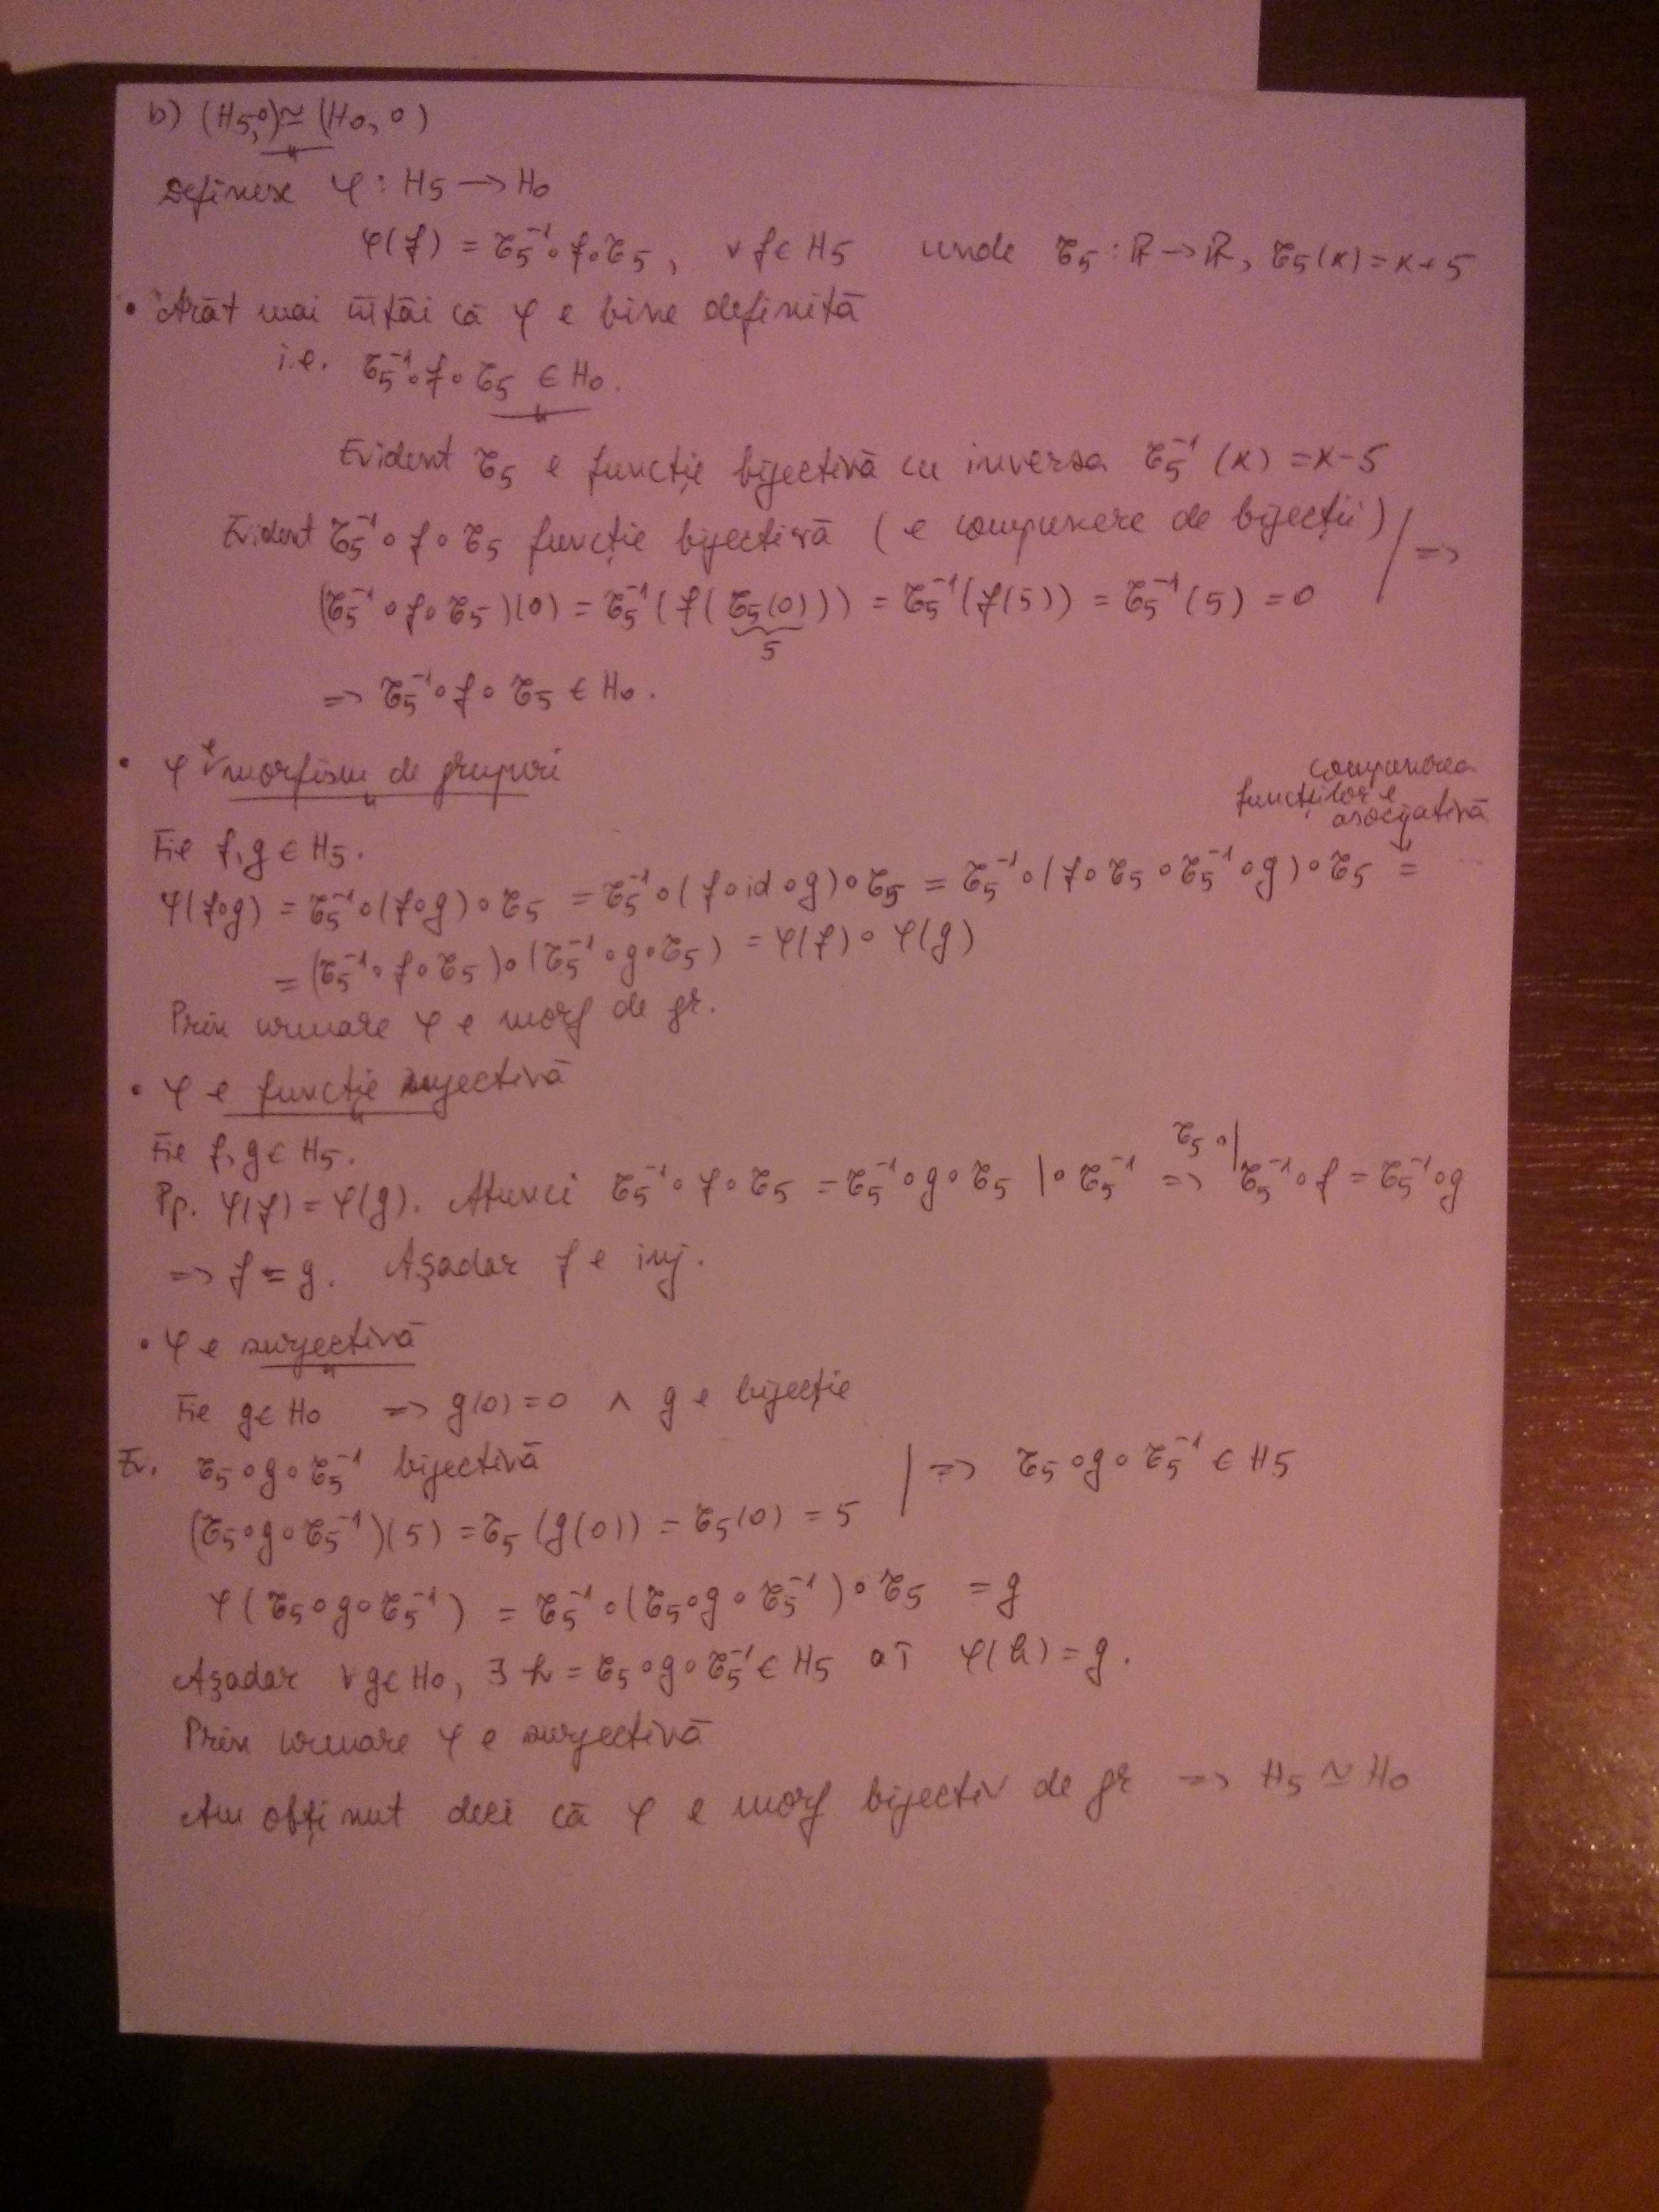 b) (H5,∘)≃(H0,∘)
Definesc φ : H5 → H0
φ(f) = τ5⁻¹∘f∘τ5, ∀ f∈H5 unde τ5 : ℝ→ℝ, τ5(x)=x+5
• Arăt mai întâi că φ e bine definită
i.e. τ5⁻¹∘f∘τ5 ∈ H0.
Evident τ5 e funcție bijectivă cu inversa τ5⁻¹(x) =x-5
Evident τ5⁻¹∘f∘τ5 funcție bijectivă (e compunere de bijecții) | =>
(τ5⁻¹∘f∘τ5)(0) = τ5⁻¹(f(τ5(0))) = τ5⁻¹(f(5)) = τ5⁻¹(5) =0
5
=> τ5⁻¹∘f∘τ5 ∈ H0.
• φ e morfism de grupuri
compunerea
funcțiilor e
asociativă
Fie f,g ∈ H5.
φ(f∘g) = τ5⁻¹∘(f∘g)∘τ5 = τ5⁻¹∘(f∘id∘g)∘τ5 = τ5⁻¹∘(f∘τ5∘τ5⁻¹∘g)∘τ5 =
= (τ5⁻¹∘f∘τ5)∘(τ5⁻¹∘g∘τ5) = φ(f)∘φ(g)
Prin urmare φ e morf de gr.
• φ e funcție injectivă
Fie f,g∈ H5.
τ5∘|
Pp. φ(f)=φ(g). Atunci τ5⁻¹∘f∘τ5 =τ5⁻¹∘g∘τ5 |∘τ5⁻¹ => τ5⁻¹∘f = τ5⁻¹∘g
=> f = g. Așadar f e inj.
• φ e surjectivă
Fie g∈H0 => g(0)=0 ∧ g e bijecție
Ev. τ5∘g∘τ5⁻¹ bijectivă | => τ5∘g∘τ5⁻¹ ∈ H5
(τ5∘g∘τ5⁻¹)(5) =τ5(g(0)) = τ5(0) = 5
φ(τ5∘g∘τ5⁻¹) = τ5⁻¹∘(τ5∘g∘τ5⁻¹)∘τ5 = g
Așadar ∀g∈H0, ∃ h = τ5∘g∘τ5⁻¹∈ H5 aî φ(h)=g.
Prin urmare φ e surjectivă
Am obținut deci că φ e morf bijectiv de gr => H5 ≃ H0